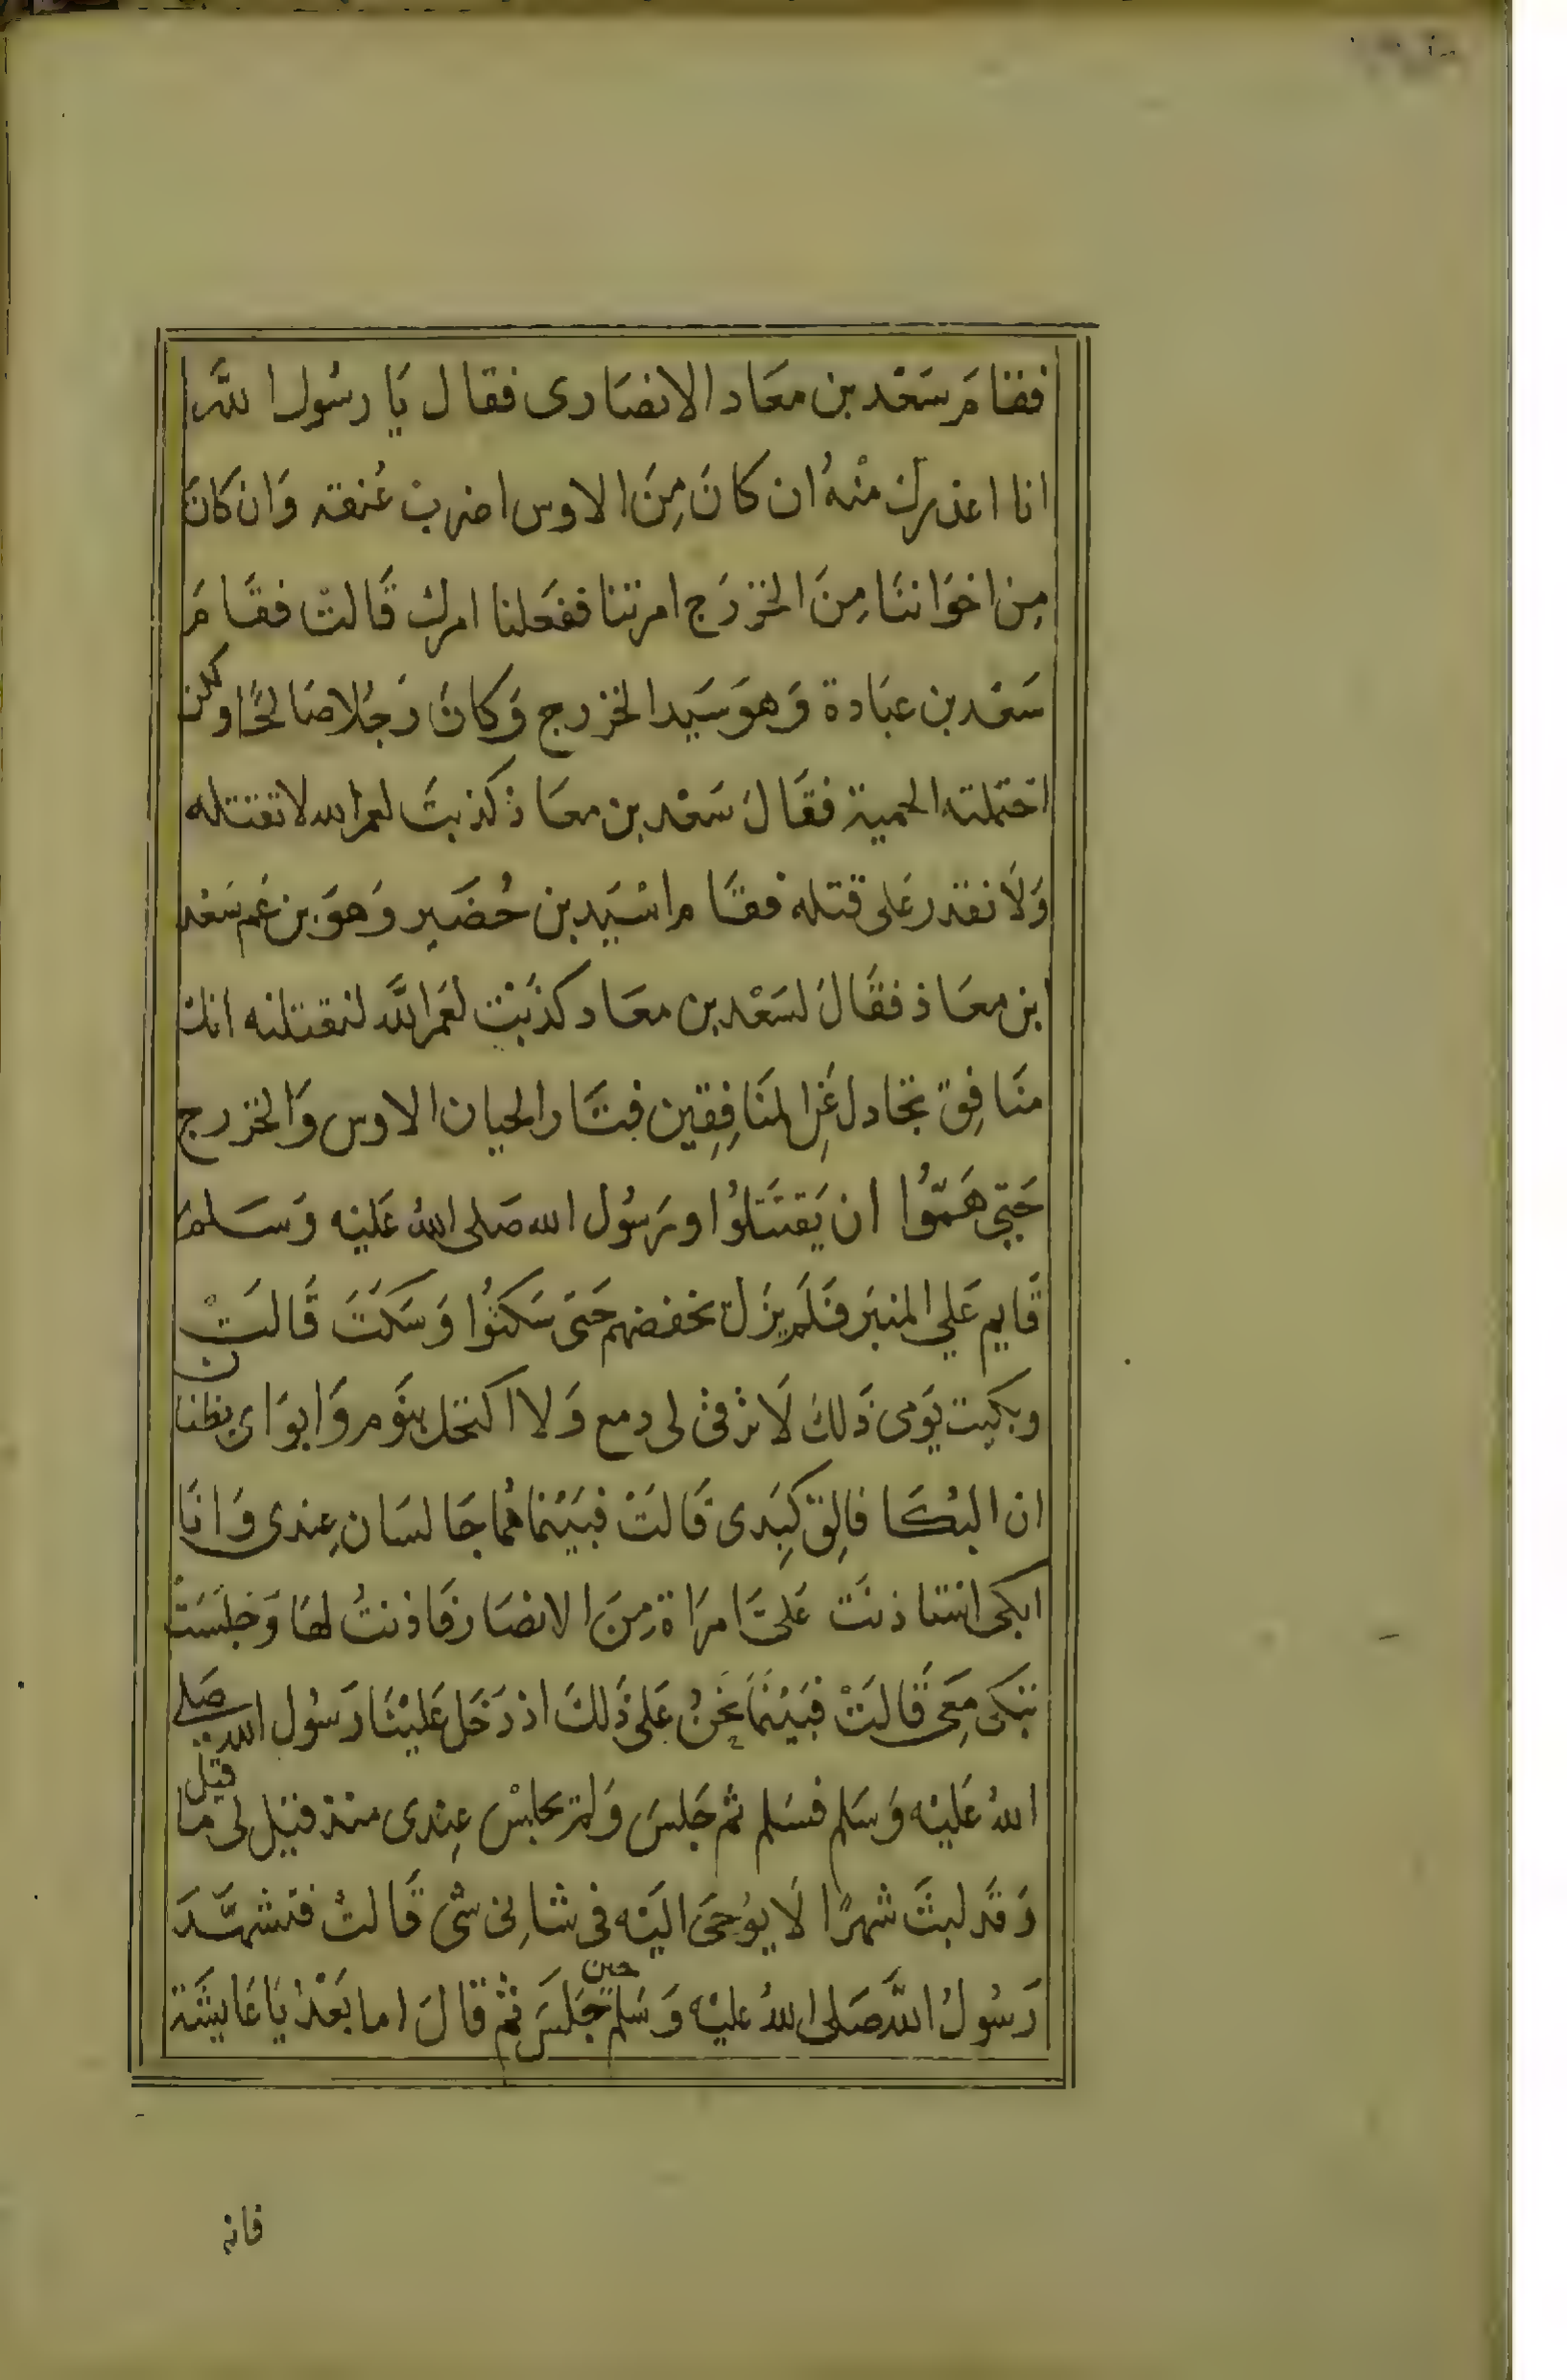 فقام سَعْد بن معَاد الانصَارى فقال يَا رسُول اللَّه
انا اعذرك منْهُ ان كانَ مِنَ الاوس اضربْ عُنقه وَان كانَ
مِن اخوَاننَا مِنَ الخزرَج امرتنا ففعَلنا امرك قَالتْ فقَامَ
سَعْد بن عبَادة وَهوَ سَيد الخزرج وَكانَ رَجُلا صَالحًا ولكن
احتملته الحمية فقَالَ سَعْد بن معَاذ كذبتَ لعمر الله لا تقتله
وَلَا تقدر عَلى قتله فقَام اسْيَد بن حُضَير وَهوَ بن عَم سَعْد
بن معَاذ فقَالَ لسَعْد بن معَاد كذَبْت لعَمر اللَّه لنقتلنه انك
منَافِق تجَادل عَنِ المنَافِقِين فتثَار الحيان الاوس وَالخزرج
حَتي هَمّوُا ان يَقتَتلوُا ورسُول الله صَلى اللهُ عَليْه وَسَلم
قَايم عَلي المنبَر فَلَم يَزل يخفضهم حَتىَ سَكتوُا وَسَكَتَ قَالَتْ
وبكيت يَومى ذَلكَ لَا يرقى لى دمع وَلا اكتحل بنَوم وَابوَاى يظنان
ان البُكَا فالِق كِبَدى قَالَتْ فبَيْنما هُما جَالسَان عِندى وَانَا
ابكى استاذنَت عَلىَّ امرَاة مِنَ الانصَار فَاذنتُ لهَا وَجَلسَتْ
تبكى مَعِى قَالَتْ فبَيْنمَا نحَنُ عَلى ذَلكَ اذ دَخَل عَليْنَا رَسُول الله صَلى
اللهُ عَليْه وَسَلم فسَلم ثم جَلسَ وَلم يجلسْ عِندى منذ قيل لى ما قيل
وَقَد لبثَ شهرًا لَا يوُحىَ اليَه فى شَانِى شى قَالتْ فتشهّدَ
رَسُولُ اللَّه صَلى اللهُ عليْه وَسَلم حين جَلَسَ ثم قَالَ اما بَعْدُ يَا عَايشَة
فانه